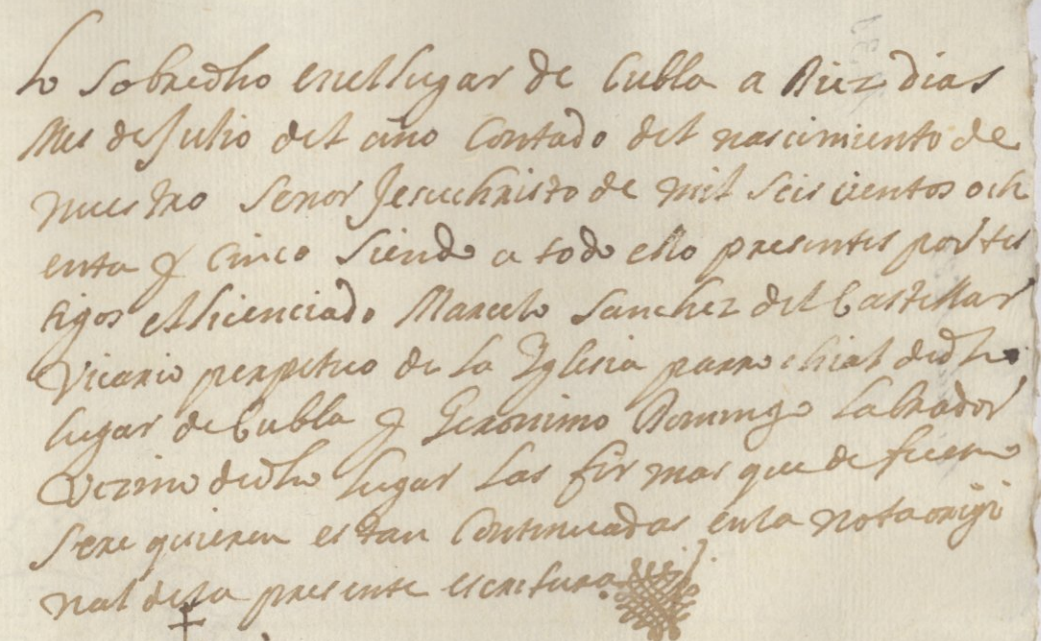 lo sobredho en el lugar de Cubla a Diez dias
Mes de Julio del año Contado del nascimiento de
nuestro Senor Jesuchristo de mil seiscientos och
enta y cinco siendo a todo ello presentes por tes
tigos el licenciado Marcelo Sanchez del Castellar
Vicario perpetuo de la Iglesia parrochial de dho
lugar de Cubla y Geronimo Domingo labrador
Vezino de dho lugar las firmas que de fuero
se requieren estan Continuadas en la nota origi
nal de la presente escritura.